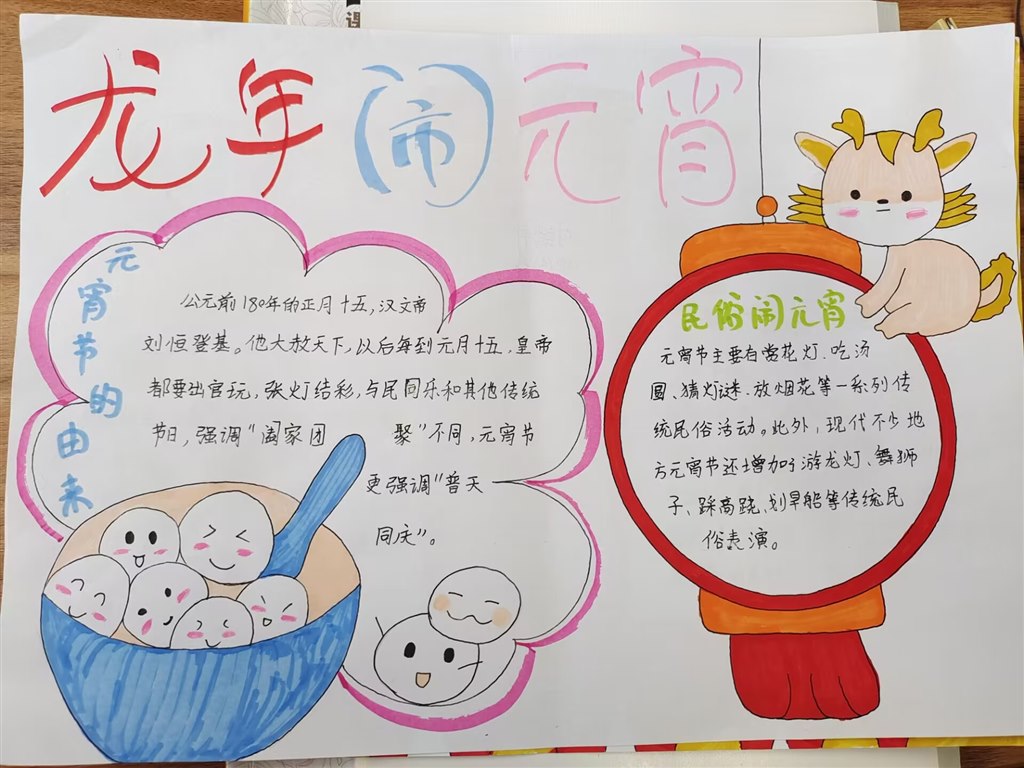 龙年闹元宵
元宵节的由来
公元前180年的正月十五,汉文帝
刘恒登基。他大赦天下,以后每到元月十五,皇帝
都要出宫玩,张灯结彩,与民同乐和其他传统
节日,强调"阖家团聚"不同,元宵节
更强调"普天
同庆"。
民俗闹元宵
元宵节主要有赏花灯、吃汤
圆、猜灯谜、放烟花等一系列传
统民俗活动。此外,现代不少地
方元宵节还增加了游龙灯、舞狮
子、踩高跷、划旱船等传统民
俗表演。